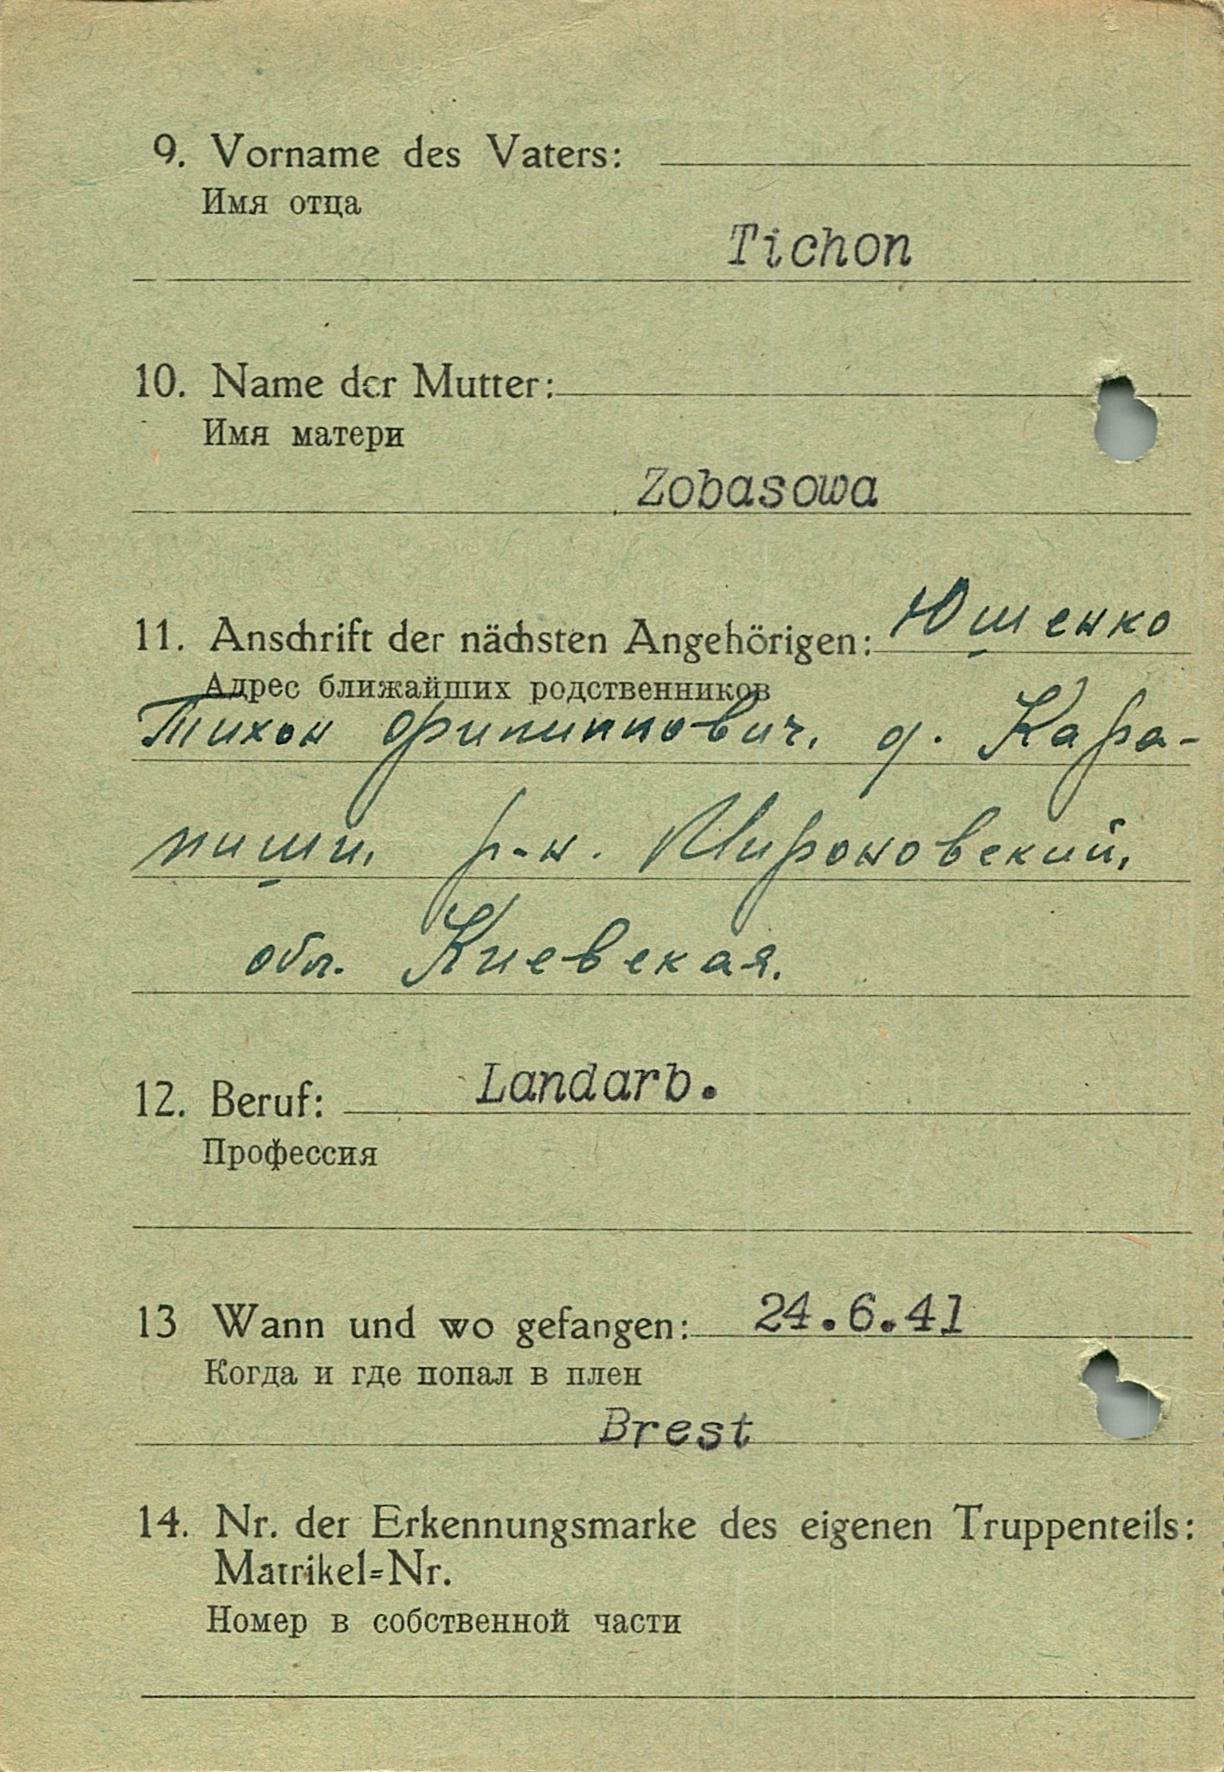 9. Vorname des Vaters:
Имя отца
Tichon
10. Name der Mutter:
Имя матери
Zobasowa
11. Anschrift der nächsten Angehörigen: Юшенко
Адрес ближайших родственников
Тихон Филиппович, д. Кара-
пиши, р-н. Мироновский,
обл. Киевская.
12. Beruf: Landarb.
Профессия
13 Wann und wo gefangen: 24.6.41
Когда и где попал в плен
Brest
14. Nr. der Erkennungsmarke des eigenen Truppenteils:
Matrikel=Nr.
Номер в собственной части